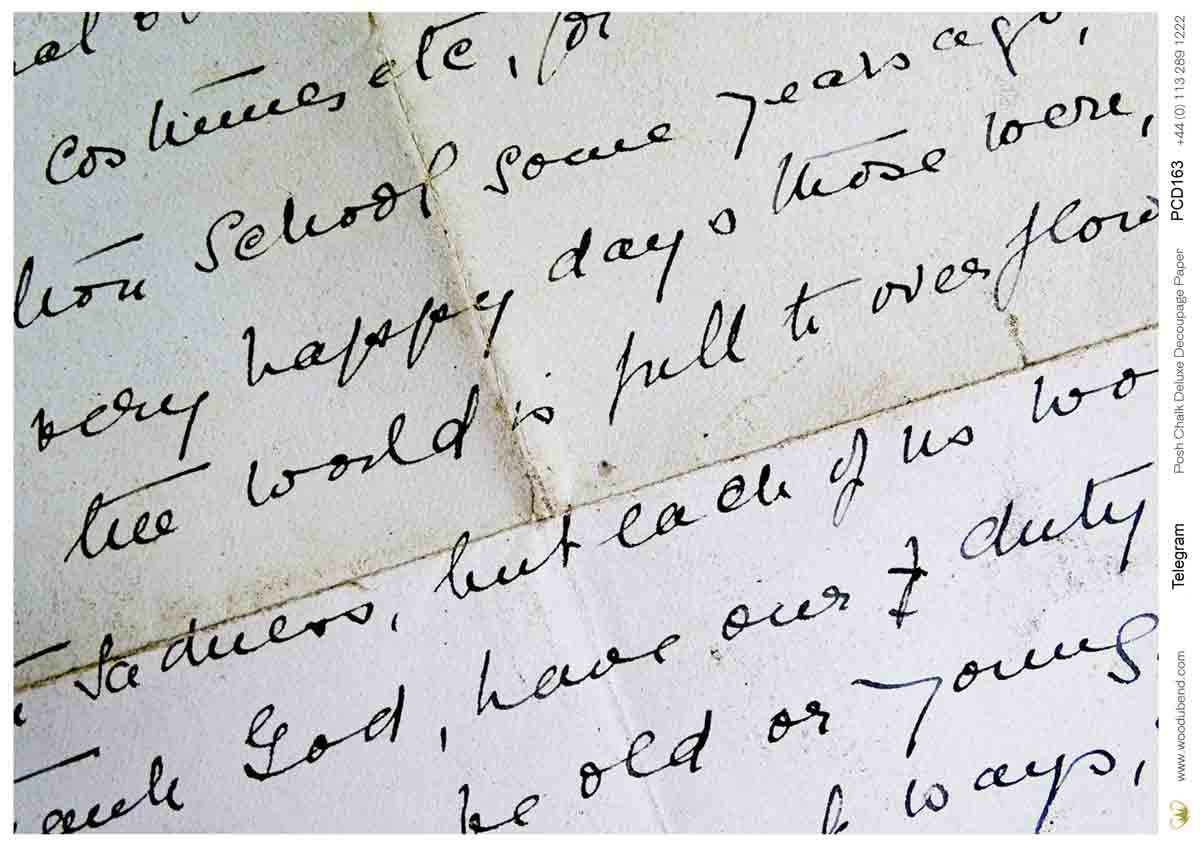 costumes etc, for
School some years ago,
very happy days those were,
the world is full to over flow
sadness, but each of us wo
ank God, have our & duty
be old or young
ways,
+44 (0) 113 289 1222
PCD163
Posh Chalk Deluxe Decoupage Paper
Telegram
www.woodubend.com